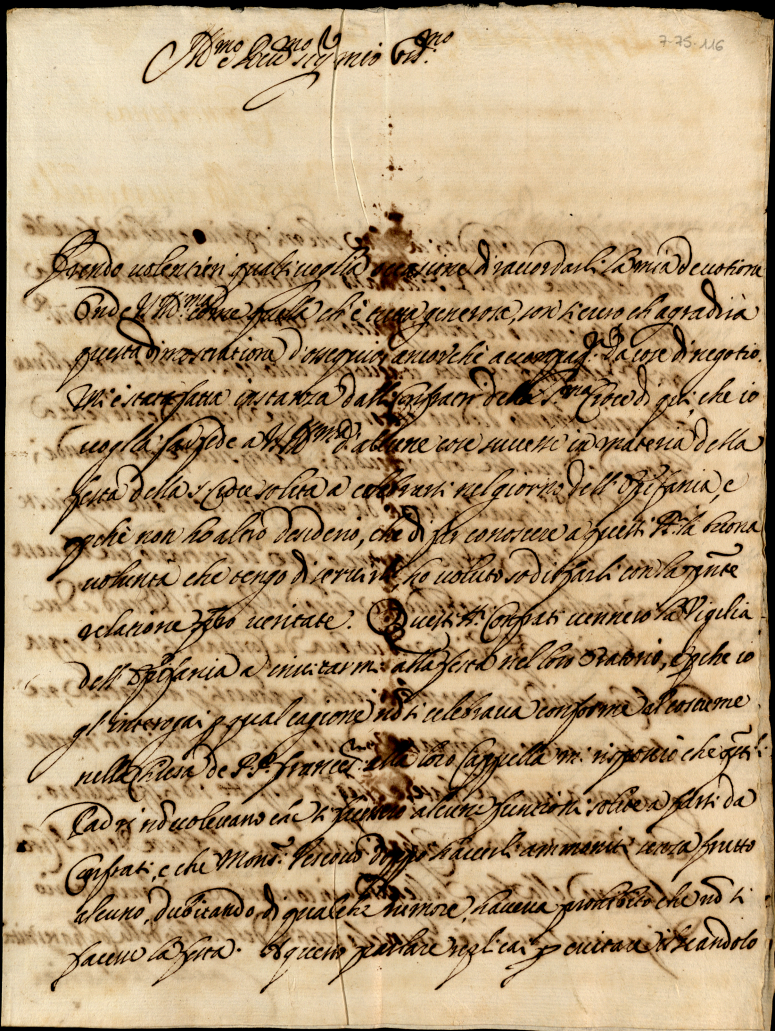 7-75-116
Ill.mo e Rev.mo Sig.r mio Oss.mo
Prendo volentieri qualsivoglia occasione di racordarli la mia devotione
Onde V.S. Ill.ma come quella ch'è tutta generosa, son sicuro ch'agradirà
questa dimostratione d'ossequio, ancorchè accompag.ta da cose di negotio.
Mi è stata fatta instanza dalli Confratri della S.ma Croce di qui, che io
voglia far fede a V.S. Ill.ma d'alcune cose successe in materia della
festa della S. Croce solita a celebrarsi nel giorno dell'Epifania, e
pchè non ho altro desiderio, che di far conoscere a questi SS.ri la buona
volontà che tengo di servirli ho voluto sodisfarli con la pnte
relatione pro veritate. Questi SS.ri Confrati vennero la Vigilia
dell'Epifania a invitarmi alla festa nel loro Oratorio, e pche io
gl'interogai p qual cagione nō si celebrava conforme al costume
nella Chiesa de P.P. Frances.ni alla loro Cappella mi risposero che q.sti
Padri nō volevano che si facessero alcune funtioni solite a farsi da
Confrati, e che Mons.r Vescovo doppo haverli ammoniti senza frutto
alcuno, dubitando di qualche rumore, haveva prohibito che nō si
facesse la festa. A questo parlare replicai p evitare il scandolo